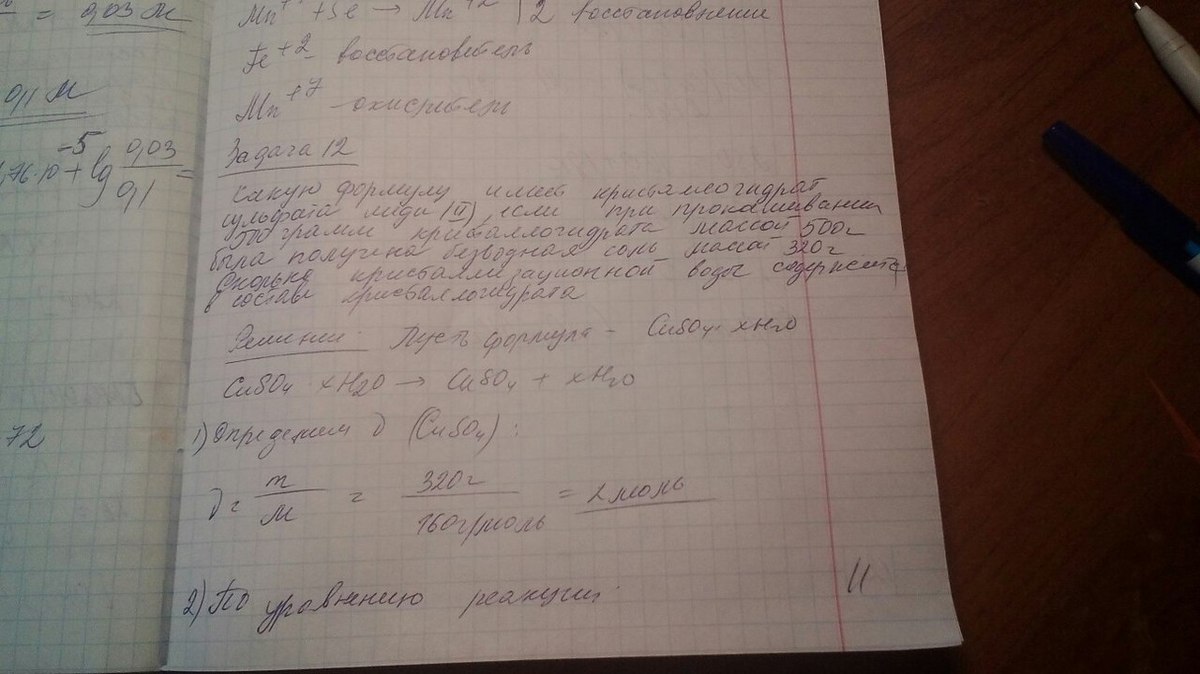 = 0,03 М
0,1 М
,76·10⁻⁵ + lg 0,03/0,1 =
72
Mn⁺ +5e → Mn⁺² | 2 восстановление
Fe⁺² - восстановитель
Mn⁺⁷ - окислитель
Задача 12
какую формулу имеет кристаллогидрат
сульфата меди (II), если при прокаливании
500 грамм кристаллогидрата массой 500г
была получена безводная соль массой 320г
Сколько кристаллизационной воды содержится
в составе кристаллогидрата
Решение: Пусть формула - CuSO₄·xH₂O
CuSO₄ xH₂O → CuSO₄ + xH₂O
1) Определяем ν (CuSO₄):
ν = m/M = 320г/160г/моль = 2 моль
2) По уравнению реакции:
11